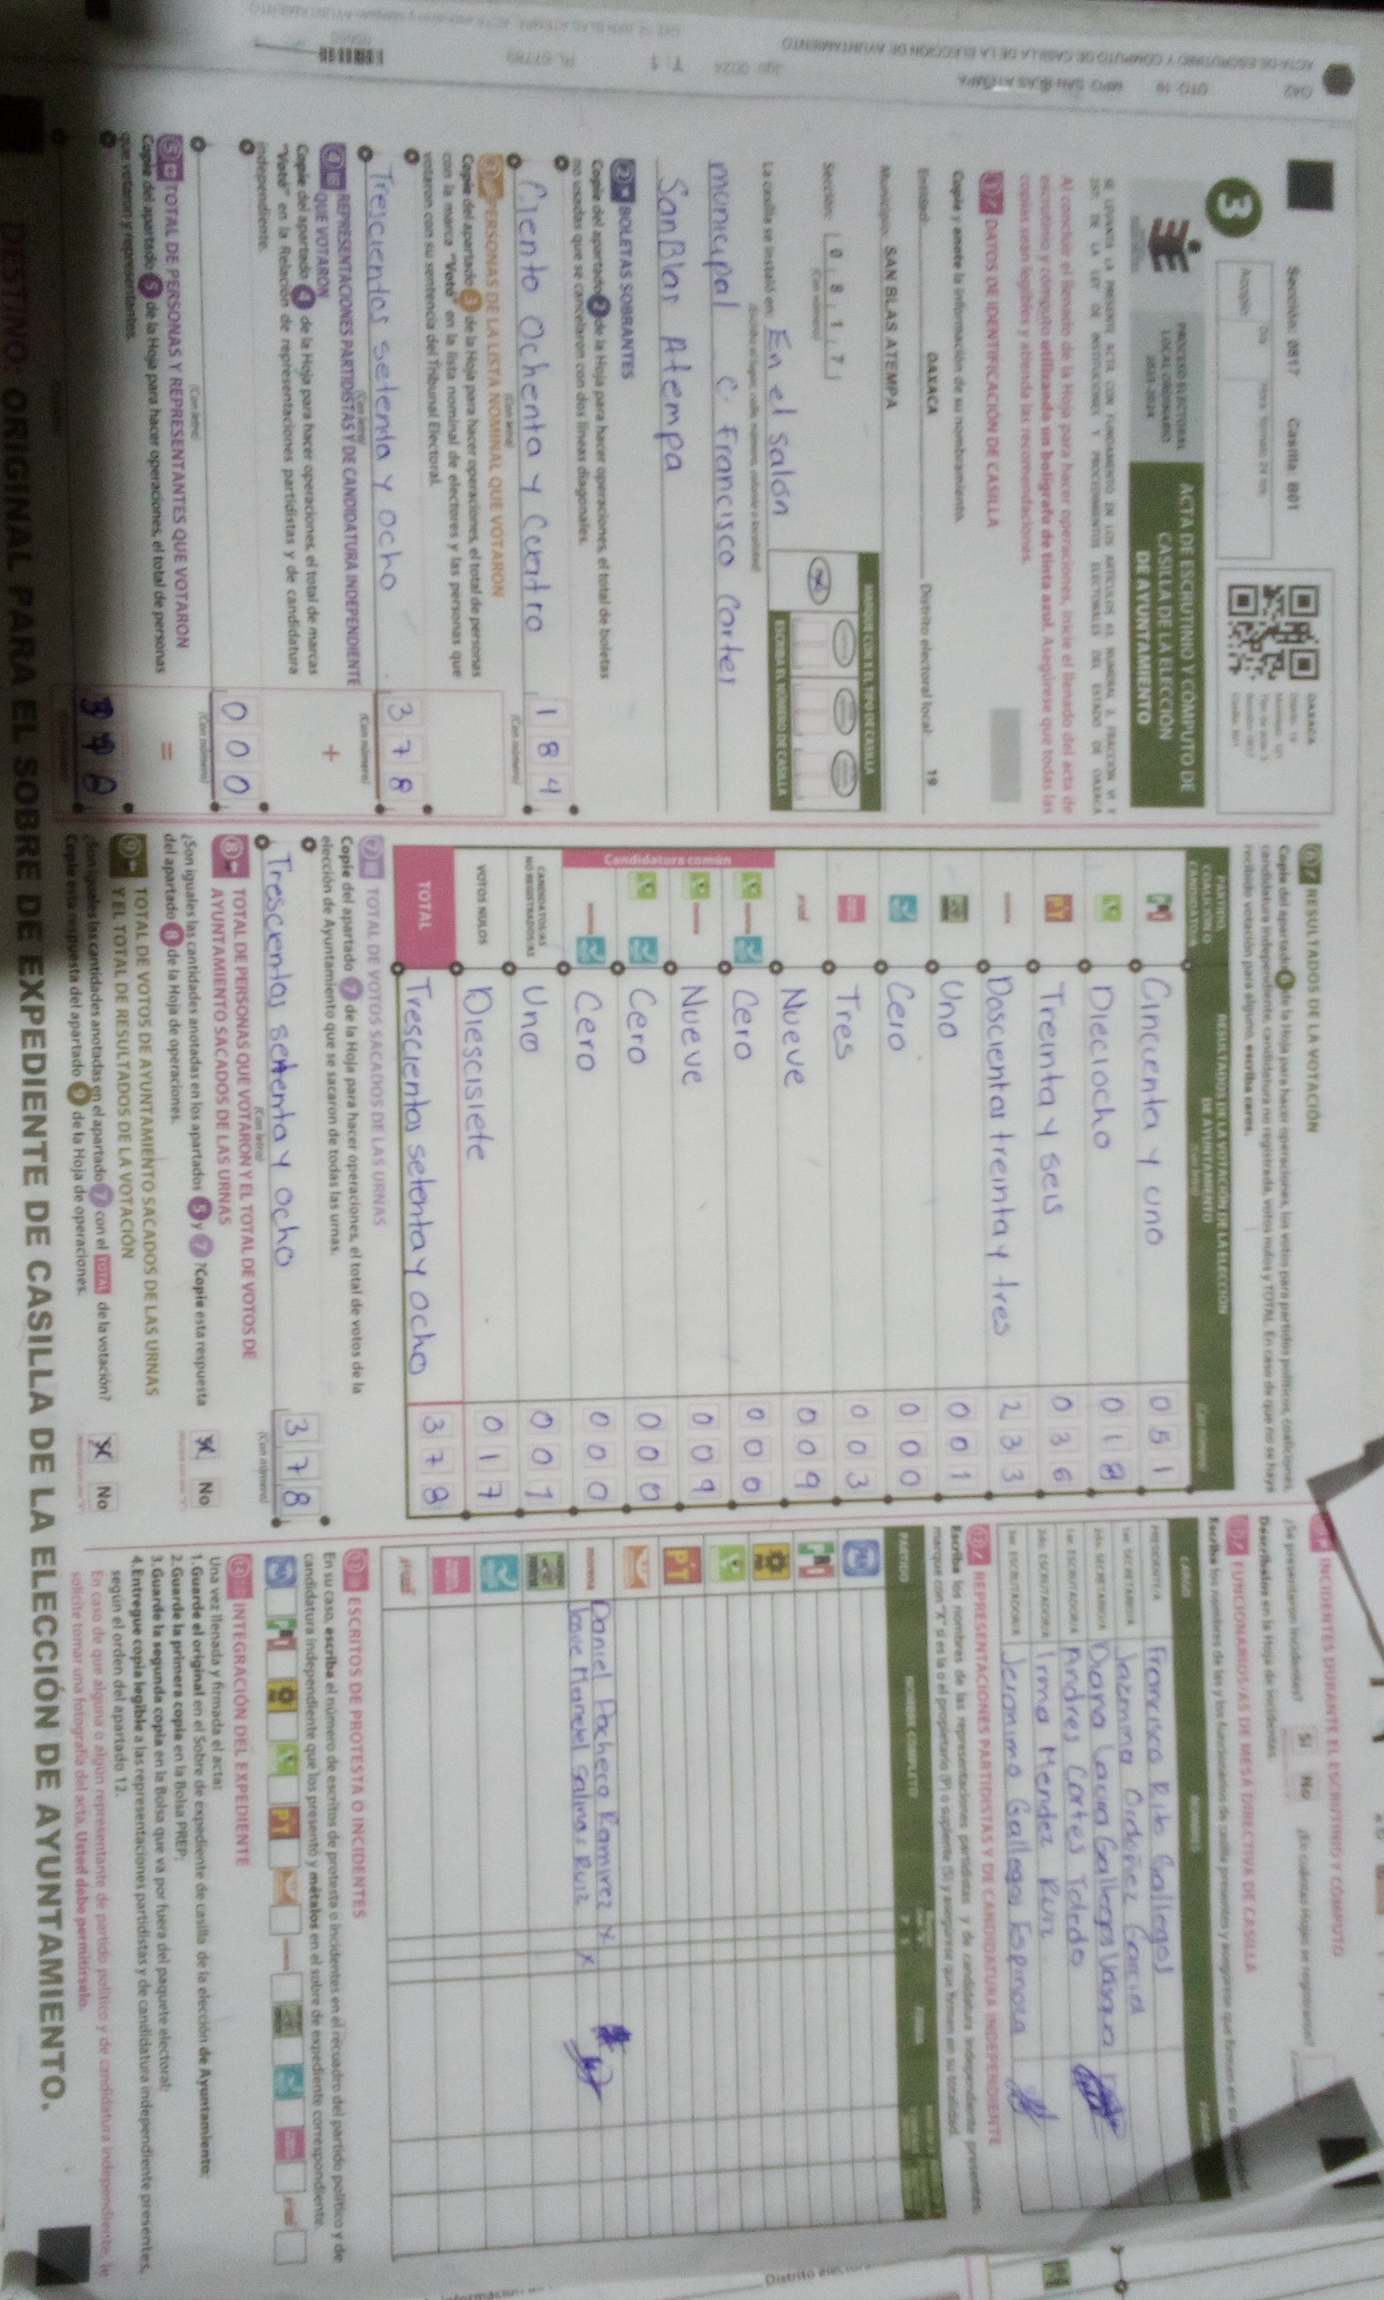 Sección: 0817 Casilla: B01
3
PROCESO ELECTORAL
LOCAL ORDINARIO
2023-2024
ACTA DE ESCRUTINIO Y CÓMPUTO DE
CASILLA DE LA ELECCIÓN
DE AYUNTAMIENTO
OAXACA
Al concluir el llenado de la Hoja para hacer operaciones, inicie el llenado del acta de
escrutinio y cómputo utilizando un bolígrafo de tinta azul. Asegúrese que todas las
copias sean legibles y atienda las recomendaciones.
1 DATOS DE IDENTIFICACIÓN DE CASILLA
Copie y anote la información de su nombramiento.
Entidad: OAXACA Distrito electoral local: 19
Municipio: SAN BLAS ATEMPA
Sección: 0 8 1 7
(Con número)
MARQUE CON X EL TIPO DE CASILLA
ESCRIBA EL NÚMERO DE CASILLA
La casilla se instaló en: En el salón
municipal C. Francisco Cortes
San Blas Atempa
2 BOLETAS SOBRANTES
Copie del apartado 2 de la Hoja para hacer operaciones, el total de boletas
no usadas que se cancelaron con dos líneas diagonales.
Ciento Ochenta y Cuatro 1 8 4
(Con letra) (Con número)
3 PERSONAS DE LA LISTA NOMINAL QUE VOTARON
Copie del apartado 3 de la Hoja para hacer operaciones, el total de personas
con la marca "Votó" en la lista nominal de electores y las personas que
votaron con su sentencia del Tribunal Electoral.
Trescientos setenta y ocho 3 7 8
(Con letra) (Con número)
4 REPRESENTACIONES PARTIDISTAS Y DE CANDIDATURA INDEPENDIENTE
QUE VOTARON +
Copie del apartado 4 de la Hoja para hacer operaciones, el total de marcas
"Votó" en la Relación de representaciones partidistas y de candidatura
independiente.
0 0 0
(Con letra) (Con número)
5 TOTAL DE PERSONAS Y REPRESENTANTES QUE VOTARON =
Copie del apartado 5 de la Hoja para hacer operaciones, el total de personas
que votaron y representantes.
3 7 8
6 RESULTADOS DE LA VOTACIÓN
Copie del apartado 6 de la Hoja para hacer operaciones, los votos para partidos políticos, coaliciones,
candidatura independiente, candidatura no registrada, votos nulos y TOTAL. En caso de que no se haya
recibido votación para alguno, escriba ceros.
PARTIDO,
COALICIÓN O
CANDIDATO/A
RESULTADOS DE LA VOTACIÓN DE LA ELECCIÓN
DE AYUNTAMIENTO
(Con letra) (Con número)
Cincuenta y uno 0 5 1
Dieciocho 0 1 8
PT Treinta y seis 0 3 6
Doscientos treinta y tres 2 3 3
Uno 0 0 1
Cero 0 0 0
Tres 0 0 3
Nueve 0 0 9
Candidatura común
Cero 0 0 0
Nueve 0 0 9
Cero 0 0 0
Cero 0 0 0
CANDIDATOS/AS
NO REGISTRADOS/AS Uno 0 0 1
VOTOS NULOS Diescisiete 0 1 7
TOTAL Trescientos setenta y ocho 3 7 8
7 TOTAL DE VOTOS SACADOS DE LAS URNAS
Copie del apartado 7 de la Hoja para hacer operaciones, el total de votos de la
elección de Ayuntamiento que se sacaron de todas las urnas.
Trescientos setenta y ocho 3 7 8
(Con letra) (Con número)
8 TOTAL DE PERSONAS QUE VOTARON Y EL TOTAL DE VOTOS DE
AYUNTAMIENTO SACADOS DE LAS URNAS
¿Son iguales las cantidades anotadas en los apartados 5 y 7? Copie esta respuesta
del apartado 8 de la Hoja de operaciones. No
9 TOTAL DE VOTOS DE AYUNTAMIENTO SACADOS DE LAS URNAS
Y EL TOTAL DE RESULTADOS DE LA VOTACIÓN
¿Son iguales las cantidades anotadas en el apartado 7 con el TOTAL de la votación? No
Copie esta respuesta del apartado 9 de la Hoja de operaciones.
INCIDENTES DURANTE EL ESCRUTINIO Y CÓMPUTO
¿Se presentaron incidentes? Sí No
Descríbalos en la Hoja de incidentes.
FUNCIONARIOS/AS DE MESA DIRECTIVA DE CASILLA
CARGO NOMBRES
PRESIDENTE/A Francisca Rito Gallegos
Jazmina Ordoñez Garcia
Diana Laura Gallegos
Andres Cortes Toledo
Irma Mendez Ruiz
Jeronimo Gallegos Espinosa
REPRESENTACIONES PARTIDISTAS Y DE CANDIDATURA INDEPENDIENTE
Escriba los nombres de las representaciones partidistas y de candidatura independiente presentes,
marque con "X" si es la o el propietario (P) o suplente (S) y asegúrese que firmen en su totalidad.
PARTIDO NOMBRE COMPLETO
PT
morena Daniel Pacheco Ramirez X
Josue Manuel Salinas Ruiz X
ESCRITOS DE PROTESTA O INCIDENTES
En su caso, escriba el número de escritos de protesta o incidentes en el recuadro del partido político y de
candidatura independiente que los presentó y métalos en el sobre de expediente correspondiente.
PT
INTEGRACIÓN DEL EXPEDIENTE
Una vez llenada y firmada el acta:
1.Guarde el original en el Sobre de expediente de casilla de la elección de Ayuntamiento;
2.Guarde la primera copia en la Bolsa PREP;
3.Guarde la segunda copia en la Bolsa que va por fuera del paquete electoral;
4.Entregue copia legible a las representaciones partidistas y de candidatura independiente presentes,
según el orden del apartado 12.
En caso de que alguna o algún representante de partido político y de candidatura independiente, le
solicite tomar una fotografía del acta. Usted debe permitírselo.
DESTINO: ORIGINAL PARA EL SOBRE DE EXPEDIENTE DE CASILLA DE LA ELECCIÓN DE AYUNTAMIENTO.